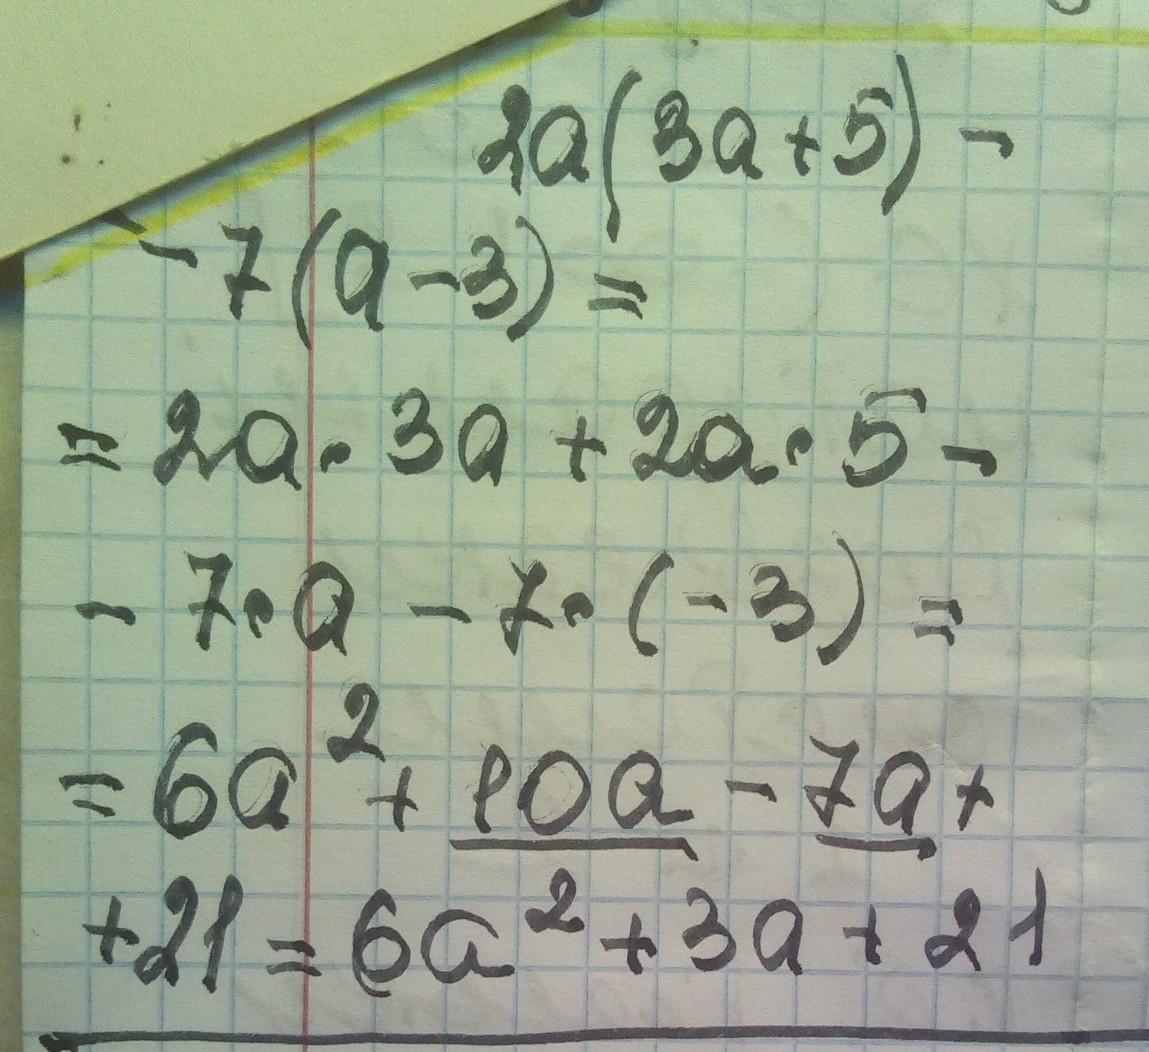 2a(3a+5) -
- 7(a-3) =
= 2a·3a + 2a·5 -
- 7·a - 7·(-3) =
= 6a² + 10a - 7a +
+ 21 = 6a² + 3a + 21